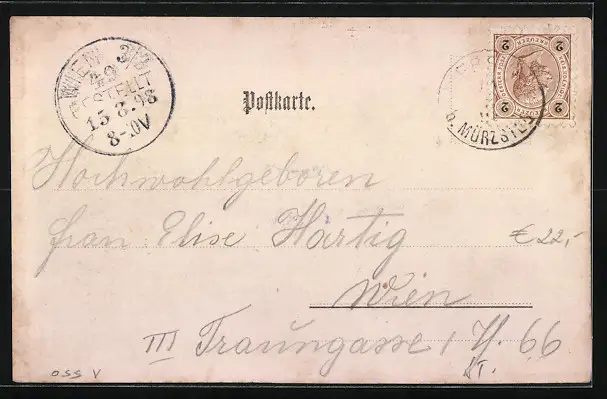 WIEN 3/3
49
BESTELLT
15.8.98
8-.0V
Postkarte.
2 2
2 2
MÜRZST
Hochwohlgeboren
Frau Elise Hartig
€ 22,-
Wien
III Traungasse
66
OSS V